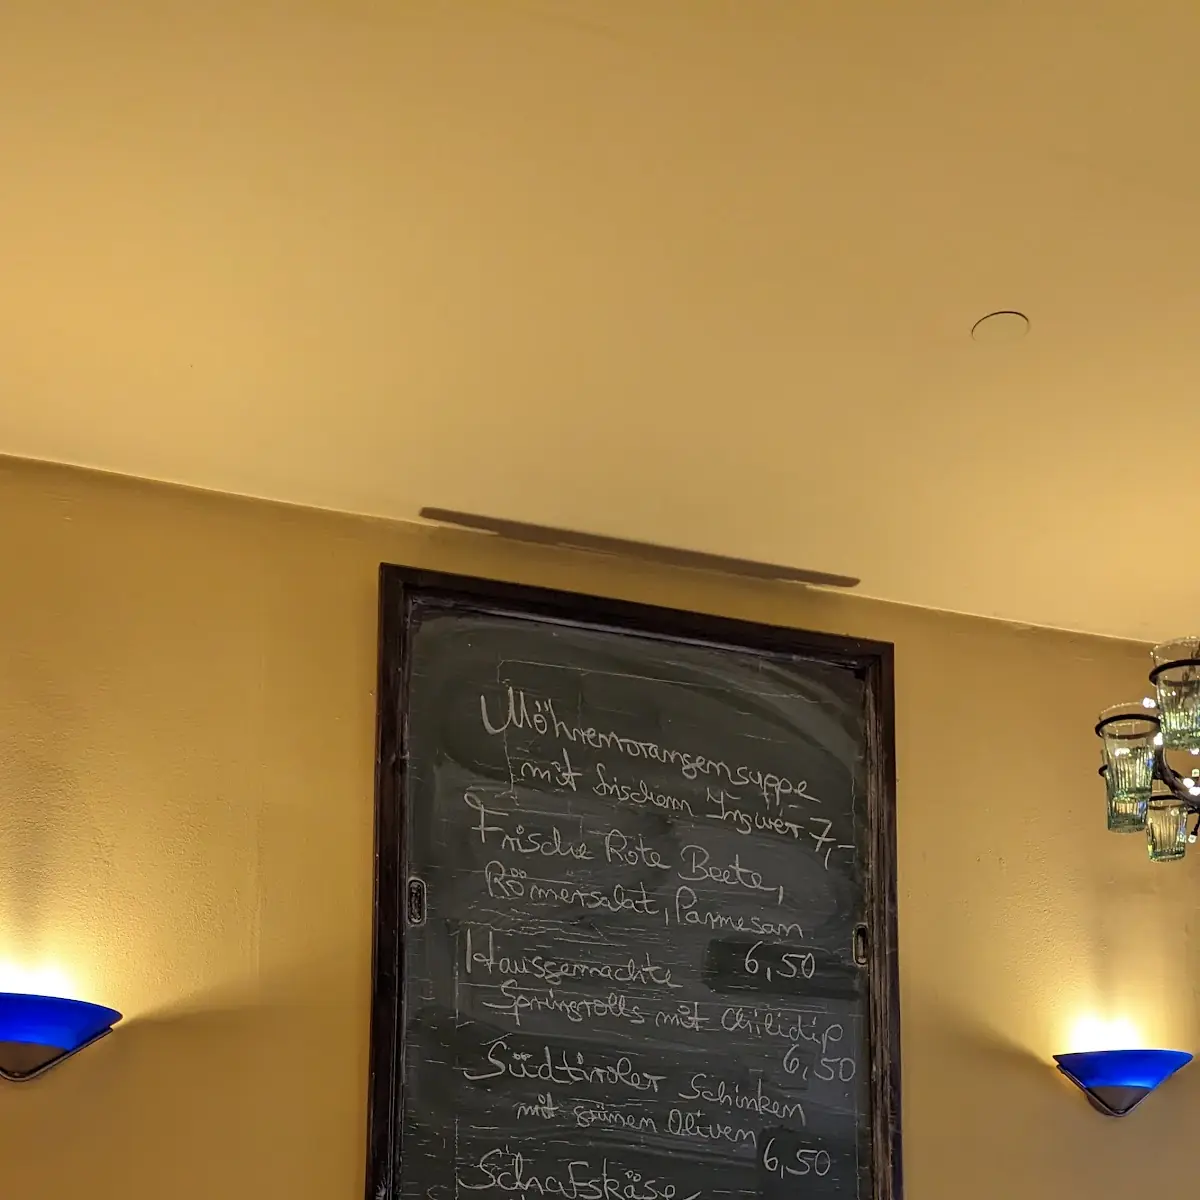 Möhrenorangensuppe
mit frischem Ingwer 7,-
Frische Rote Beete,
Römersalat, Parmesan
6,50
Hausgemachte
Springrolls mit Chilidip
6,50
Südtiroler Schinken
mit grünen Oliven
6,50
Schafskäse